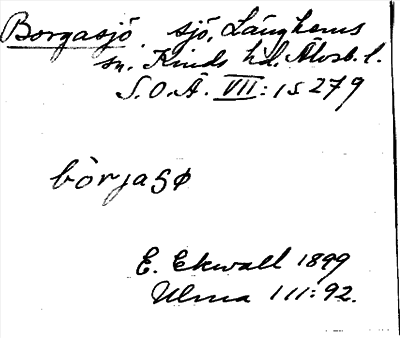 Borgasjö, sjö, Länghems
sn. Kinds hd. Älvsb. l.
S.O.Ä. VII: 1 s 279
bòrjasø
E. Ekwall 1899
Ulma 111:92.